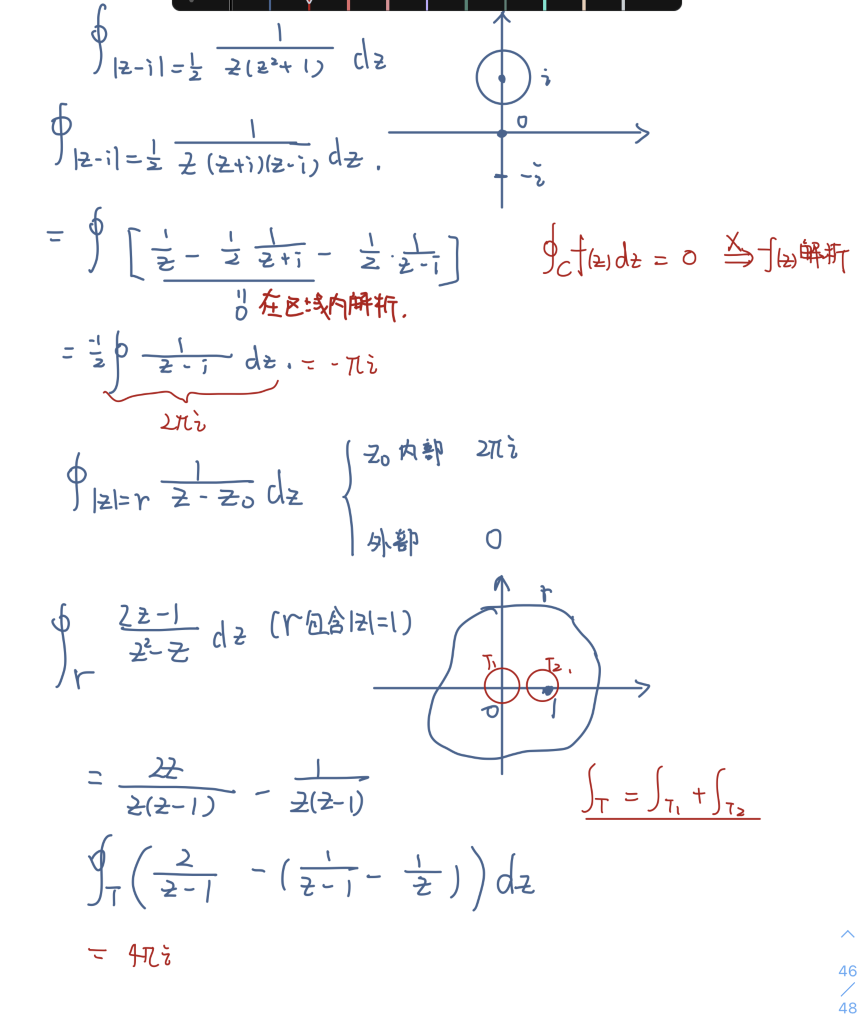 ∮_{|z-i|=1/2} 1/(z(z²+1)) dz
i
0
-i
∮_{|z-i|=1/2} 1/(z(z+i)(z-i)) dz.
= ∮ [1/z - 1/2 1/(z+i) - 1/2 · 1/(z-i)]
∮_C f(z)dz = 0 ⇏ f(z)解析
" 0 在区域内解析.
= -1/2 ∮ 1/(z-i) dz. = -πi
2πi
∮_{|z|=r} 1/(z-z₀) dz { z₀内部 2πi
外部 0
∮_r (2z-1)/(z²-z) dz (r包含|z|=1)
r
T₁ T₂.
0 1
= 2z/(z(z-1)) - 1/(z(z-1))
∫_T = ∫_{T₁} + ∫_{T₂}
∮_T (2/(z-1) - (1/(z-1) - 1/z)) dz
= 4πi
46
/
48